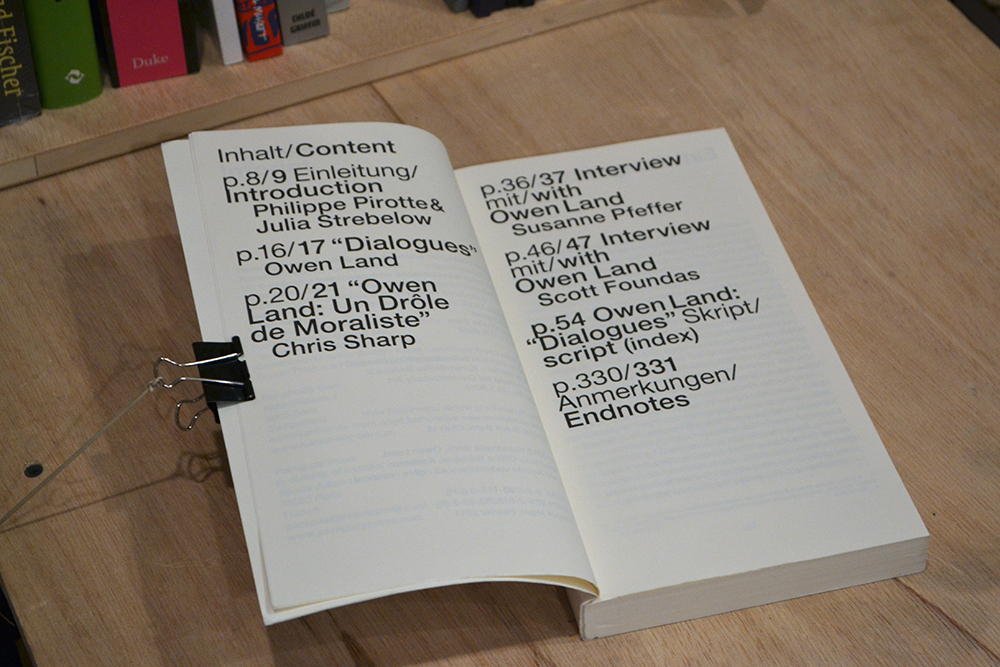 Fischer
Duke
CHLOÉ
Inhalt/Content
p.8/9 Einleitung/
Introduction
Philippe Pirotte &
Julia Strebelow
p.16/17 “Dialogues”
Owen Land
p.20/21 “Owen
Land: Un Drôle
de Moraliste”
Chris Sharp
p.36/37 Interview
mit/with
Owen Land
Susanne Pfeffer
p.46/47 Interview
mit/with
Owen Land
Scott Foundas
p.54 Owen Land:
“Dialogues” Skript/
script (index)
p.330/331
Anmerkungen/
Endnotes